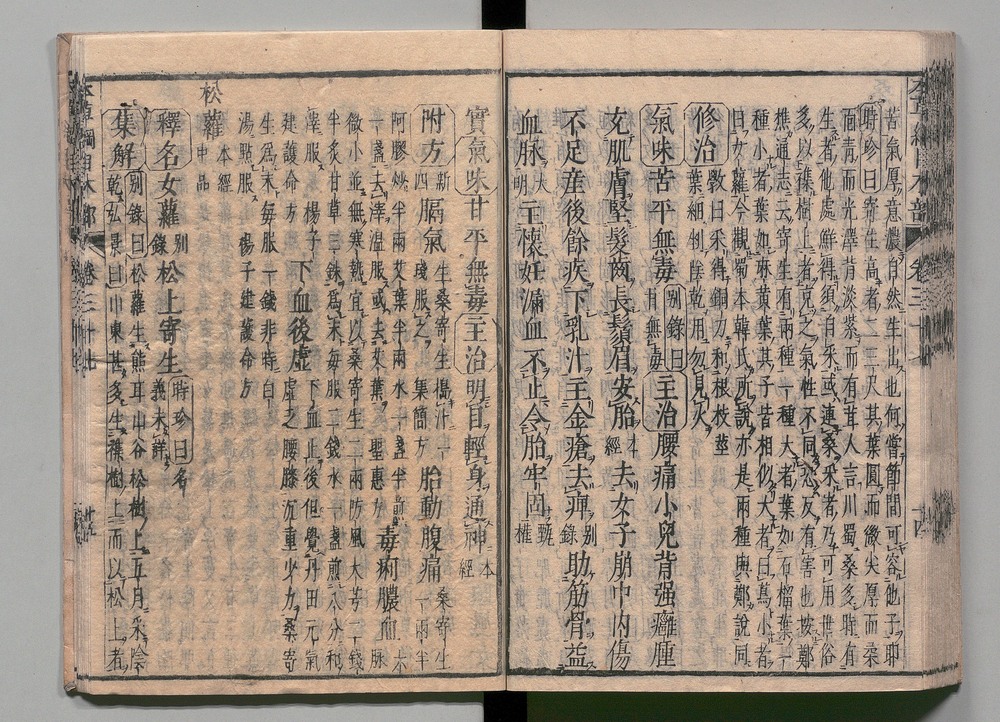 苦氣厚意濃自然生出也何嘗節間可容他子耶
時珍曰寄生高者二三尺其葉圓而微尖厚而柔
面青而光澤背淡紫而有茸人言川蜀桑多時有
生者他處鮮得須自采或連桑采者乃可用世俗
多以雜樹上者充之氣性不同恐反有害也按鄭
樵通志云寄生有兩種一種大者葉如石榴葉一
種小者葉如麻黃葉其子皆相似大者曰蔦小者
曰女蘿今觀蜀本韓氏所說亦是兩種與鄭說同
修治 斅曰采得銅刀和根枝莖葉細剉陰乾用勿見火
氣味 苦平無毒 别錄曰甘無毒 主治 腰痛小兒背强癰腫
充肌膚堅髮齒長鬚眉安胎 本經 去女子崩中內傷
不足產後餘疾下乳汁主金瘡去痺 别錄 助筋骨益
血脉 大明 主懷妊漏血不止令胎牢固 甄權
實氣味 甘平無毒 主治 明目輕身通神 本經
附方 新四 膈氣 生桑寄生搗汁一盞服之 集簡方 胎動腹痛 桑寄生一兩半
阿膠炒半兩艾葉半兩水一盞半煎
一盞去滓温服或去艾葉 聖惠方 毒痢膿血 脉
微小並無寒熱宜以桑寄生二兩防風大芎二錢
半炙甘草三銖爲末每服二錢水一盞煎八分和
滓服 楊子建護命方 下血後虛 下血止後但覺丹田元氣虛乏腰膝沉重少力桑寄
生爲末每服一錢非時白
湯點服 楊子建護命方
松蘿 本經中品
釋名 女蘿 别錄 松上寄生 時珍曰名義未詳
集解 别錄曰松蘿生熊耳山谷松樹上五月采陰
乾弘景曰東山甚多生雜樹上而以松上者